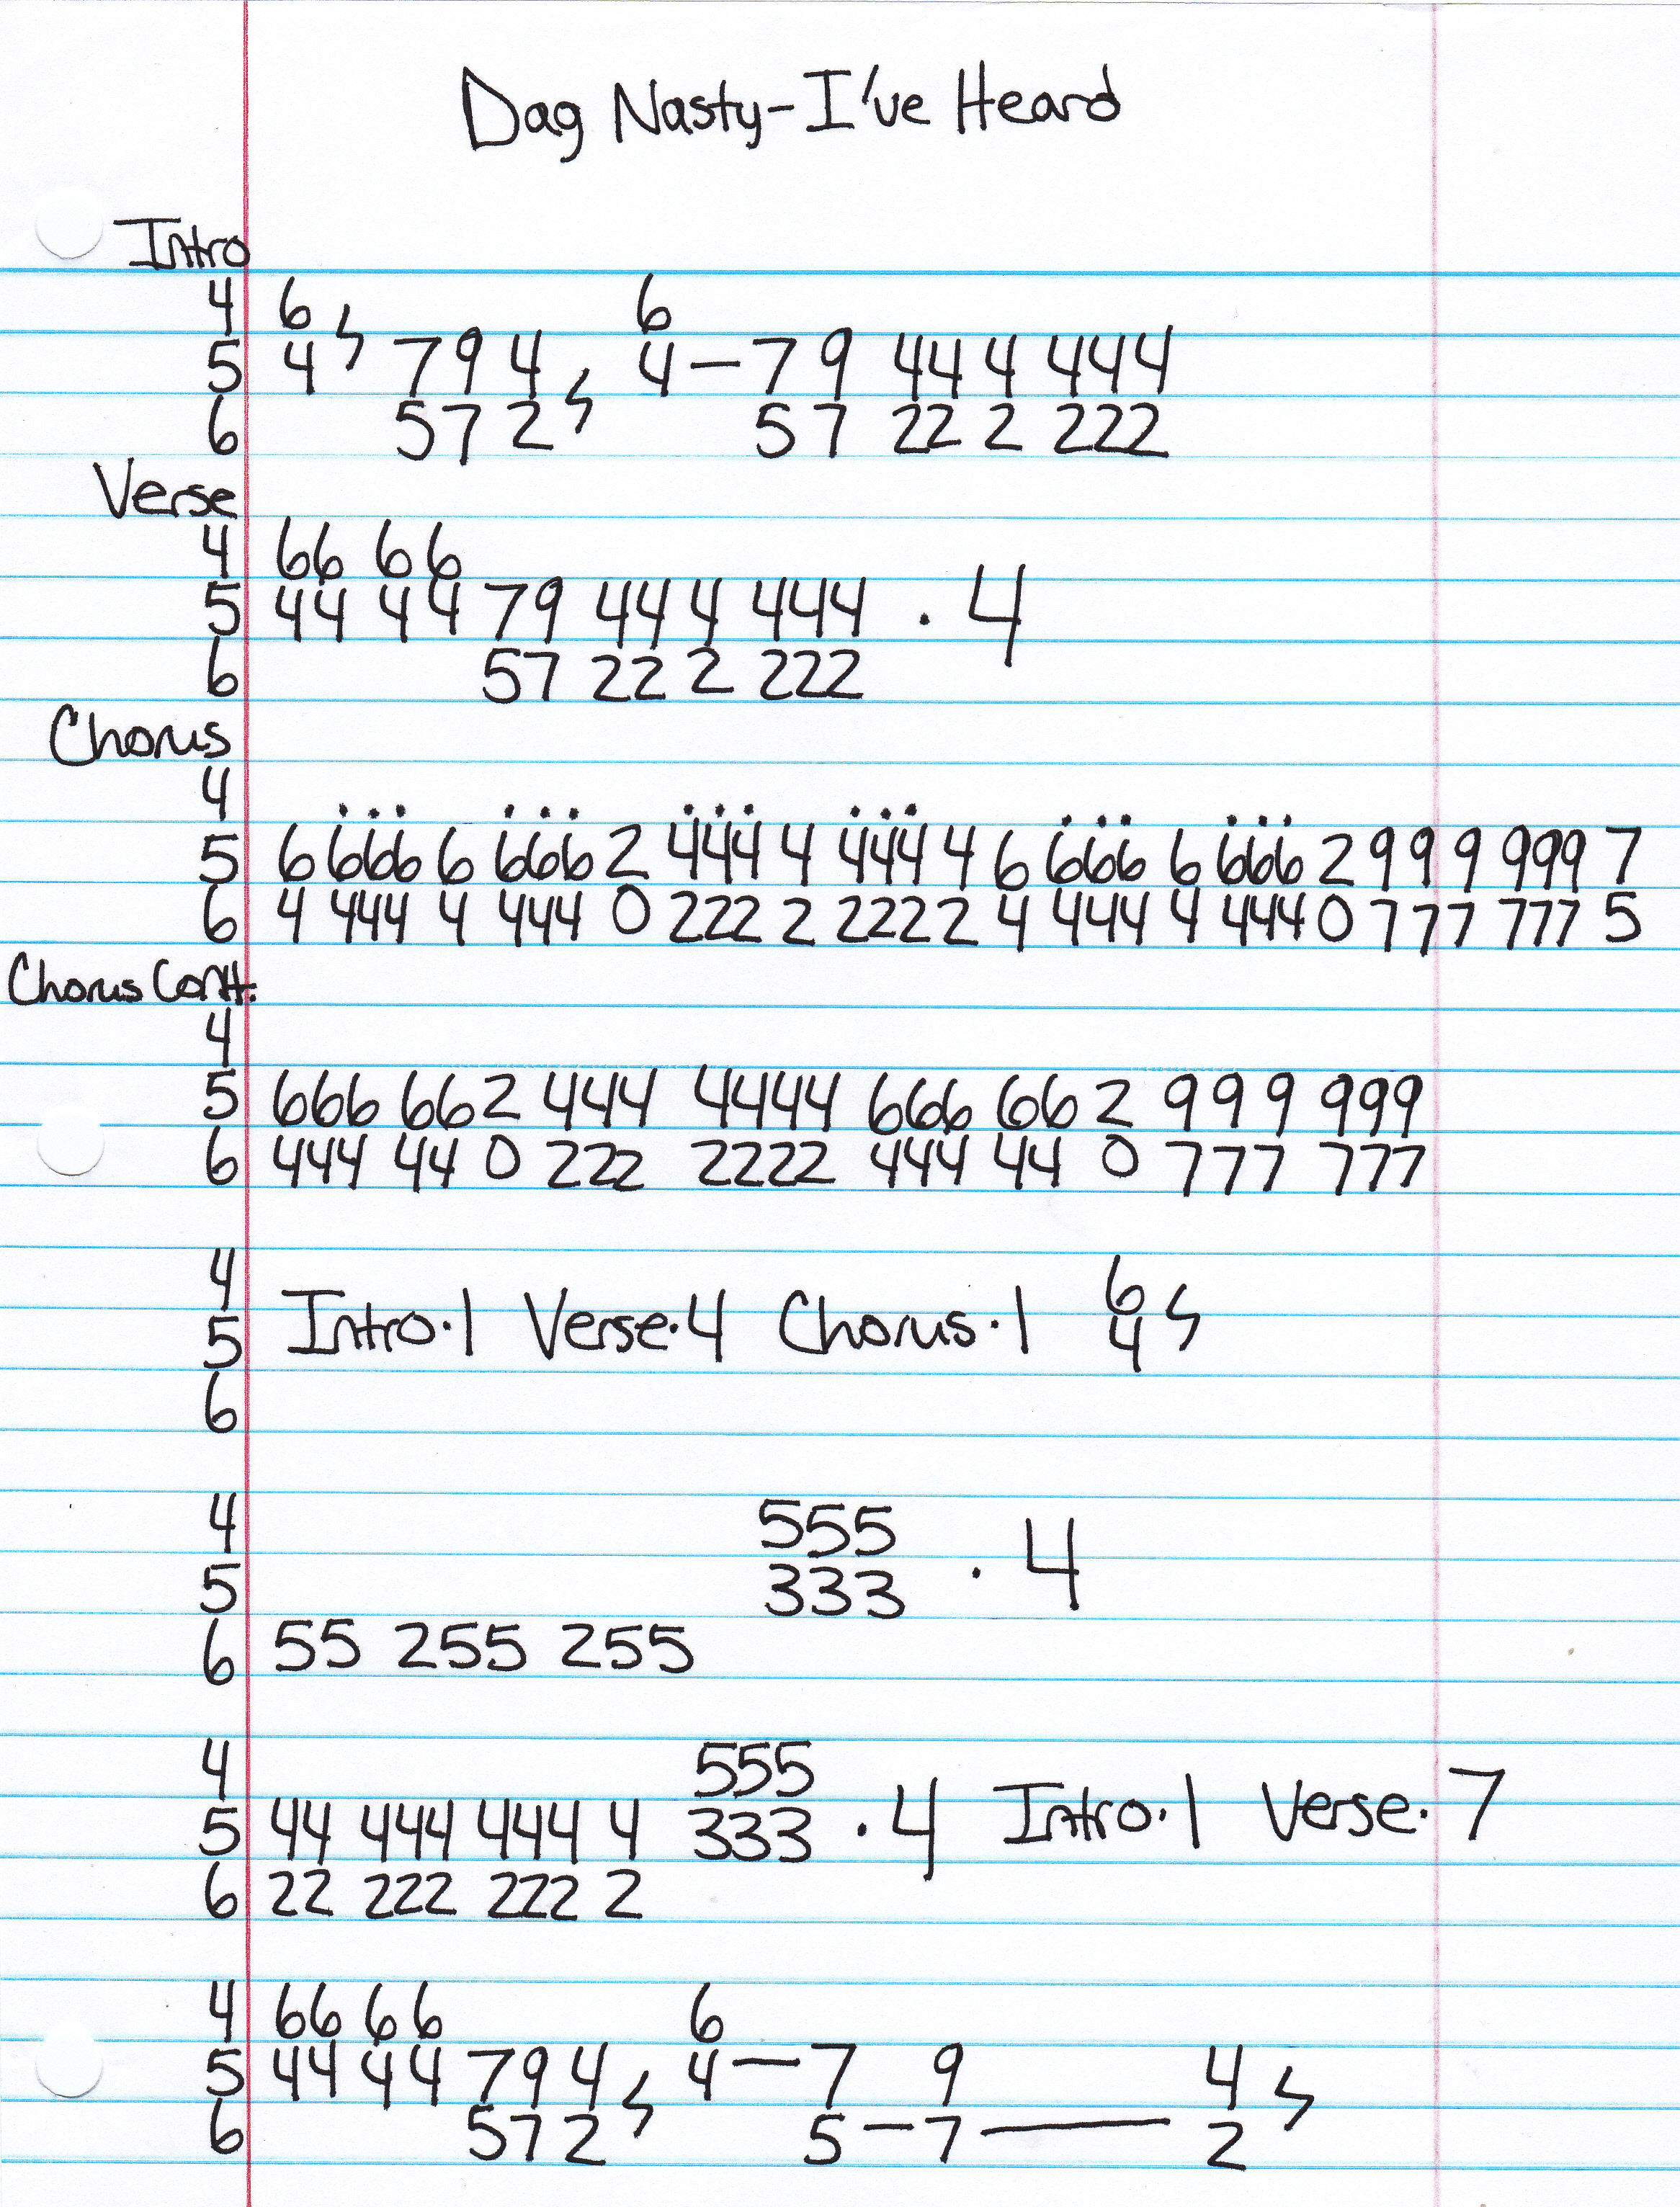 Dag Nasty-I've Heard
Intro
4 6 6
5 4 7 9 4 4 – 7 9 44 4 444
6 5 7 2 5 7 22 2 222
Verse
4 66 66
5 44 44 79 44 4 444 · 4
6 57 22 2 222
Chorus
4
5 6 666 6 666 2 444 4 444 4 6 666 6 666 2 9 9 9 999 7
6 4 444 4 444 0 222 2 222 2 4 444 4 444 0 7 7 7 777 5
Chorus Cont.
4
5 666 66 2 444 4444 666 66 2 9 9 9 999
6 444 44 0 222 2222 444 44 0 7 7 7 777
4 6
5 Intro·1 Verse·4 Chorus·1 4
6
4 555
5 333 · 4
6 55 255 255
4 555
5 44 444 444 4 333 · 4 Intro·1 Verse·7
6 22 222 222 2
4 66 66 6
5 44 44 79 4 4 – 7 9 4
6 57 2 5 – 7 — 2